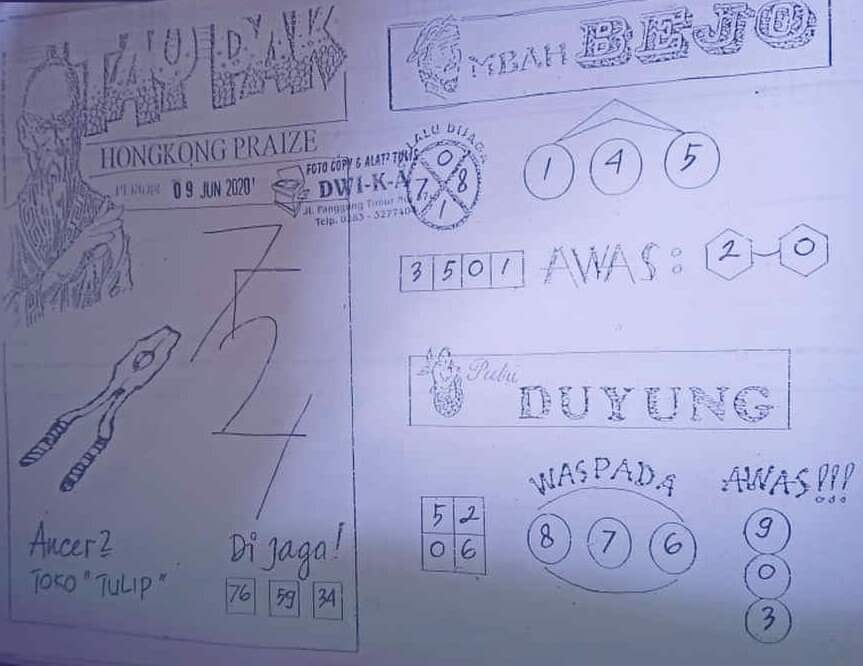 TAU PAK
HONGKONG PRAIZE
09 JUN 2020
FOTO COPY & ALAT2 TULIS
DWI-KA
Jl. Panggung Timur
Telp. 0283 - 3277404
7
5
2
4
Ancer2
TOKO "TULIP"
Di jaga!
76 59 34
MBAH BEJO
LALU DIJAGA
0
7 8
1
1 4 5
3 5 0 1
AWAS: 2-0
Putri
DUYUNG
WASPADA
5 2
0 6
8 7 6
AWAS!!!
9
0
3